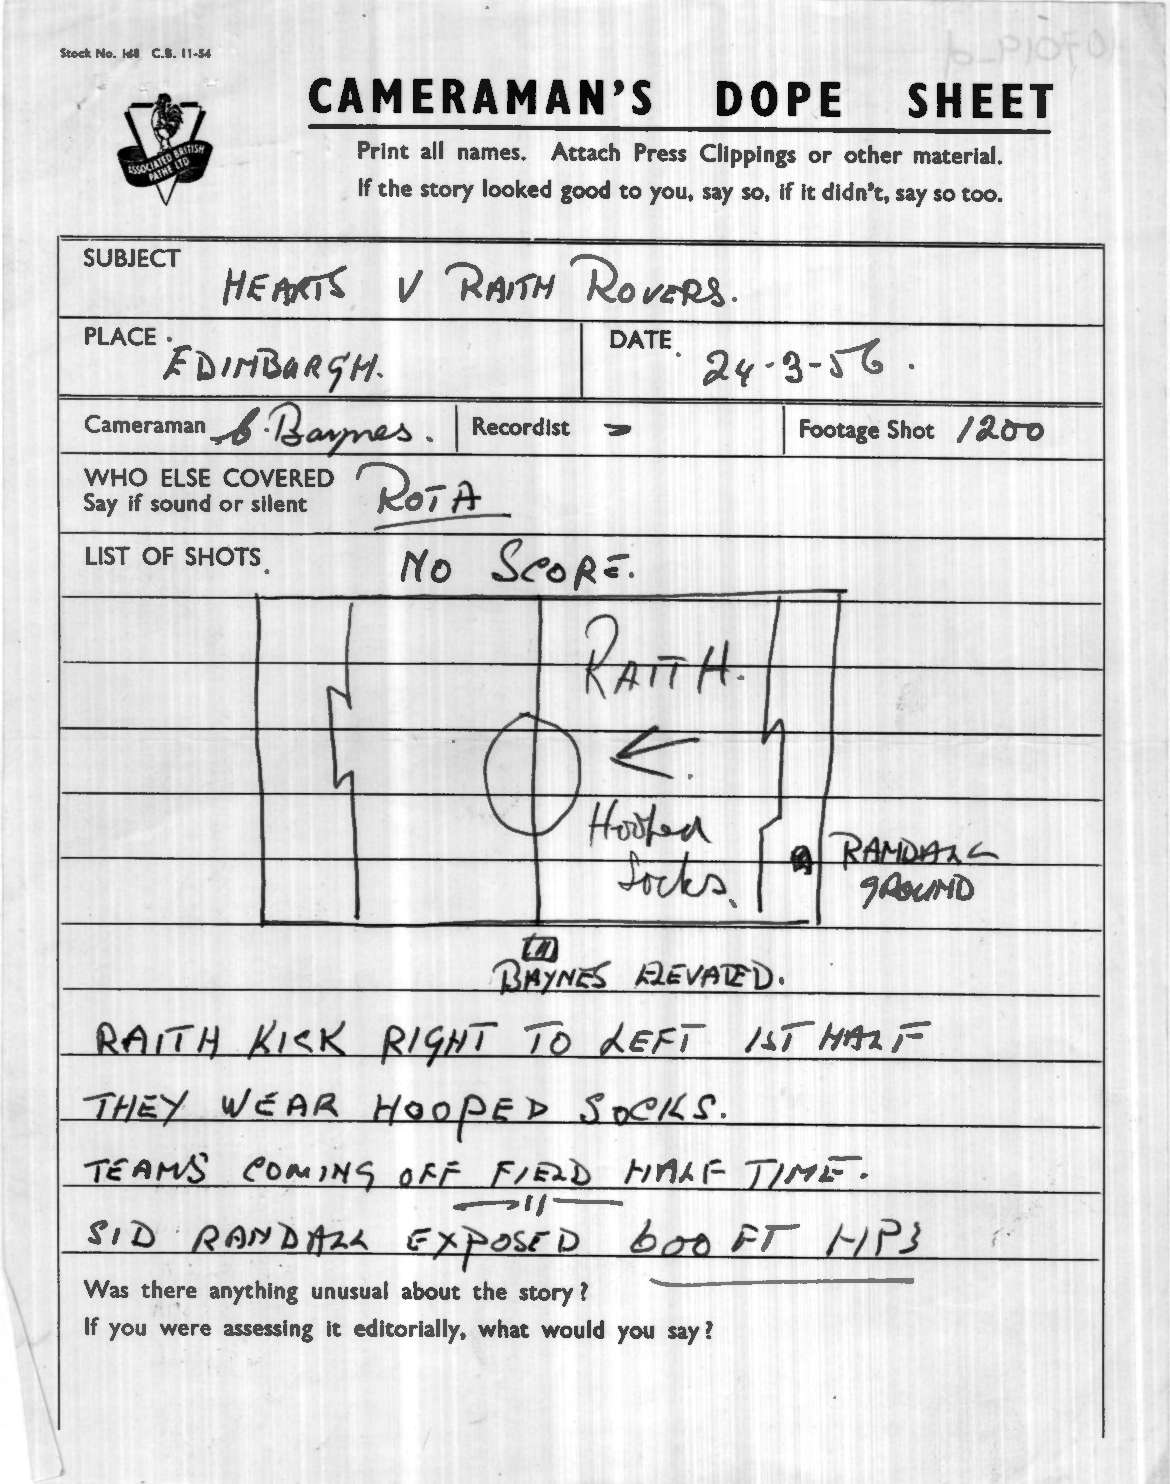 Stock No. 168 C.B. 11-54
CAMERAMAN'S DOPE SHEET
ASSOCIATED BRITISH
PATHE LTD
Print all names. Attach Press Clippings or other material.
If the story looked good to you, say so, if it didn't, say so too.
SUBJECT
HEARTS V RAITH ROVERS.
PLACE DATE
EDINBURGH. 24-3-56.
Cameraman Baynes. Recordist - Footage Shot 1200
WHO ELSE COVERED
Say if sound or silent
ROTA
LIST OF SHOTS. NO SCORE.
RAITH.
Hooped
Socks.
RANDALL
GROUND
BAYNES ELEVATED.
RAITH KICK RIGHT TO LEFT 1ST HALF
THEY WEAR HOOPED SOCKS.
TEAMS COMING OFF FIELD HALF TIME.
SID RANDALL EXPOSED 600 FT HP3
Was there anything unusual about the story?
If you were assessing it editorially, what would you say?